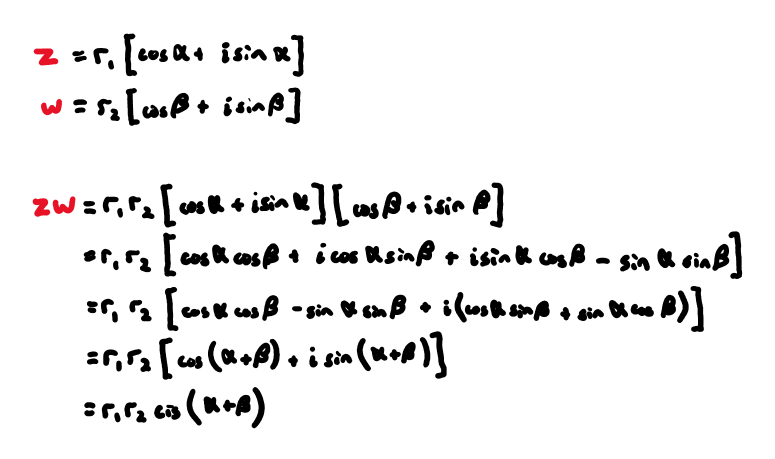 z = r₁ [cos α + i sin α]
w = r₂ [cos β + i sin β]
zw = r₁ r₂ [cos α + i sin α] [cos β + i sin β]
= r₁ r₂ [cos α cos β + i cos α sin β + i sin α cos β − sin α sin β]
= r₁ r₂ [cos α cos β − sin α sin β + i (cos α sin β + sin α cos β)]
= r₁ r₂ [cos (α+β) + i sin (α+β)]
= r₁ r₂ cis (α+β)